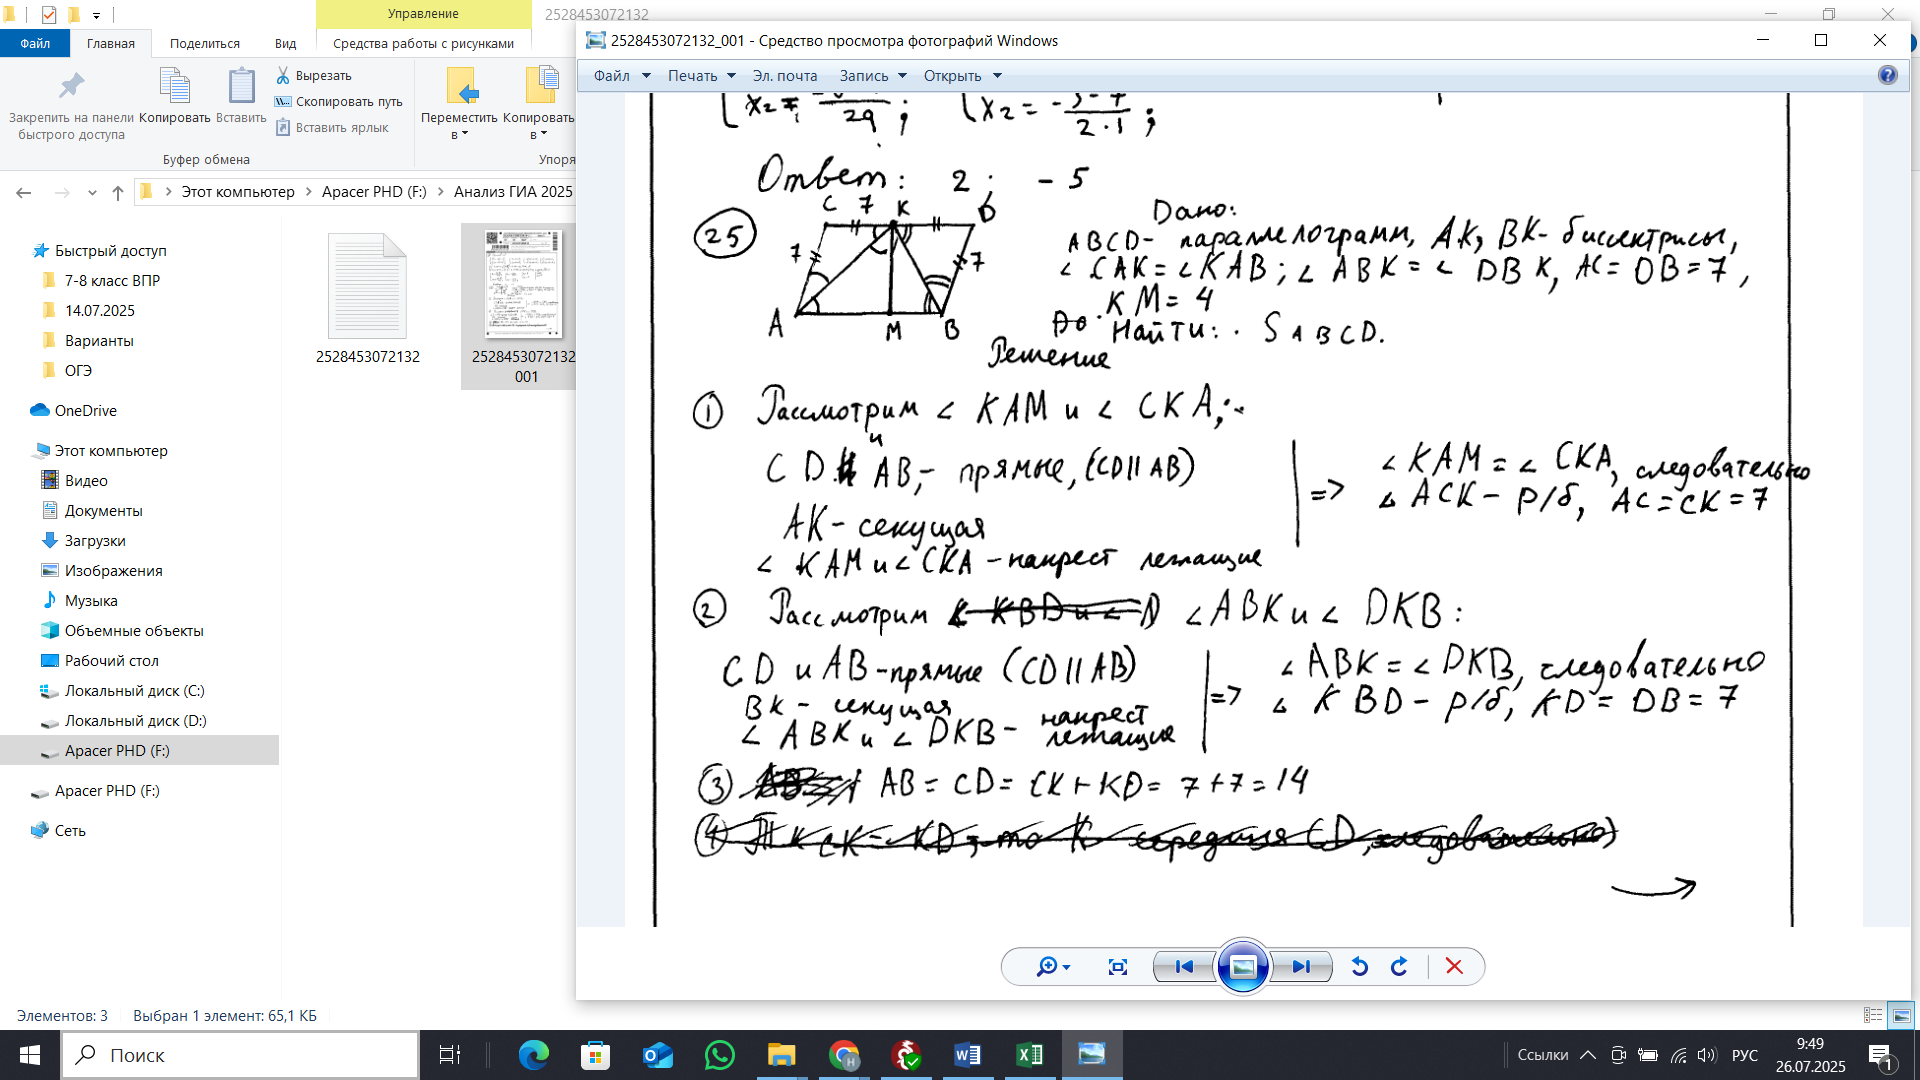 Управление
2528453072132
Файл
Главная
Поделиться
Вид
Средства работы с рисунками
Закрепить на панели быстрого доступа
Копировать
Вставить
Вырезать
Скопировать путь
Вставить ярлык
Буфер обмена
Переместить в
Копировать в
Упоря
Этот компьютер
Apacer PHD (F:)
Анализ ГИА 2025
Быстрый доступ
7-8 класс ВПР
14.07.2025
Варианты
ОГЭ
OneDrive
Этот компьютер
Видео
Документы
Загрузки
Изображения
Музыка
Объемные объекты
Рабочий стол
Локальный диск (C:)
Локальный диск (D:)
Apacer PHD (F:)
Apacer PHD (F:)
Сеть
2528453072132
2528453072132
001
Элементов: 3
Выбран 1 элемент: 65,1 КБ
2528453072132_001 - Средство просмотра фотографий Windows
Файл
Печать
Эл. почта
Запись
Открыть
Ответ: 2; -5
25
C 7 K D
7 7
A M B
Дано:
ABCD- параллелограмм, AK, BK- биссектрисы,
∠ CAK = ∠ KAB; ∠ ABK = ∠ DBK, AC = DB = 7,
KM = 4
Найти: S ABCD.
Решение
① Рассмотрим ∠ KAM и ∠ CKA;
CD и AB,- прямые, (CD || AB)
AK- секущая
∠ KAM и ∠ CKA - накрест лежащие
=> ∠ KAM = ∠ CKA, следовательно
△ ACK - р/б, AC = CK = 7
② Рассмотрим ∠ABK и ∠ DKB:
CD и AB-прямые (CD || AB)
BK - секущая
∠ ABK и ∠ DKB - накрест лежащие
=> ∠ ABK = ∠ DKB, следовательно
△ KBD - р/б, KD = DB = 7
③ AB = CD = CK + KD = 7+7 = 14
④ Т.к CK = KD, то K середина CD, следовательно
Поиск
Ссылки
РУС
9:49
26.07.2025
1